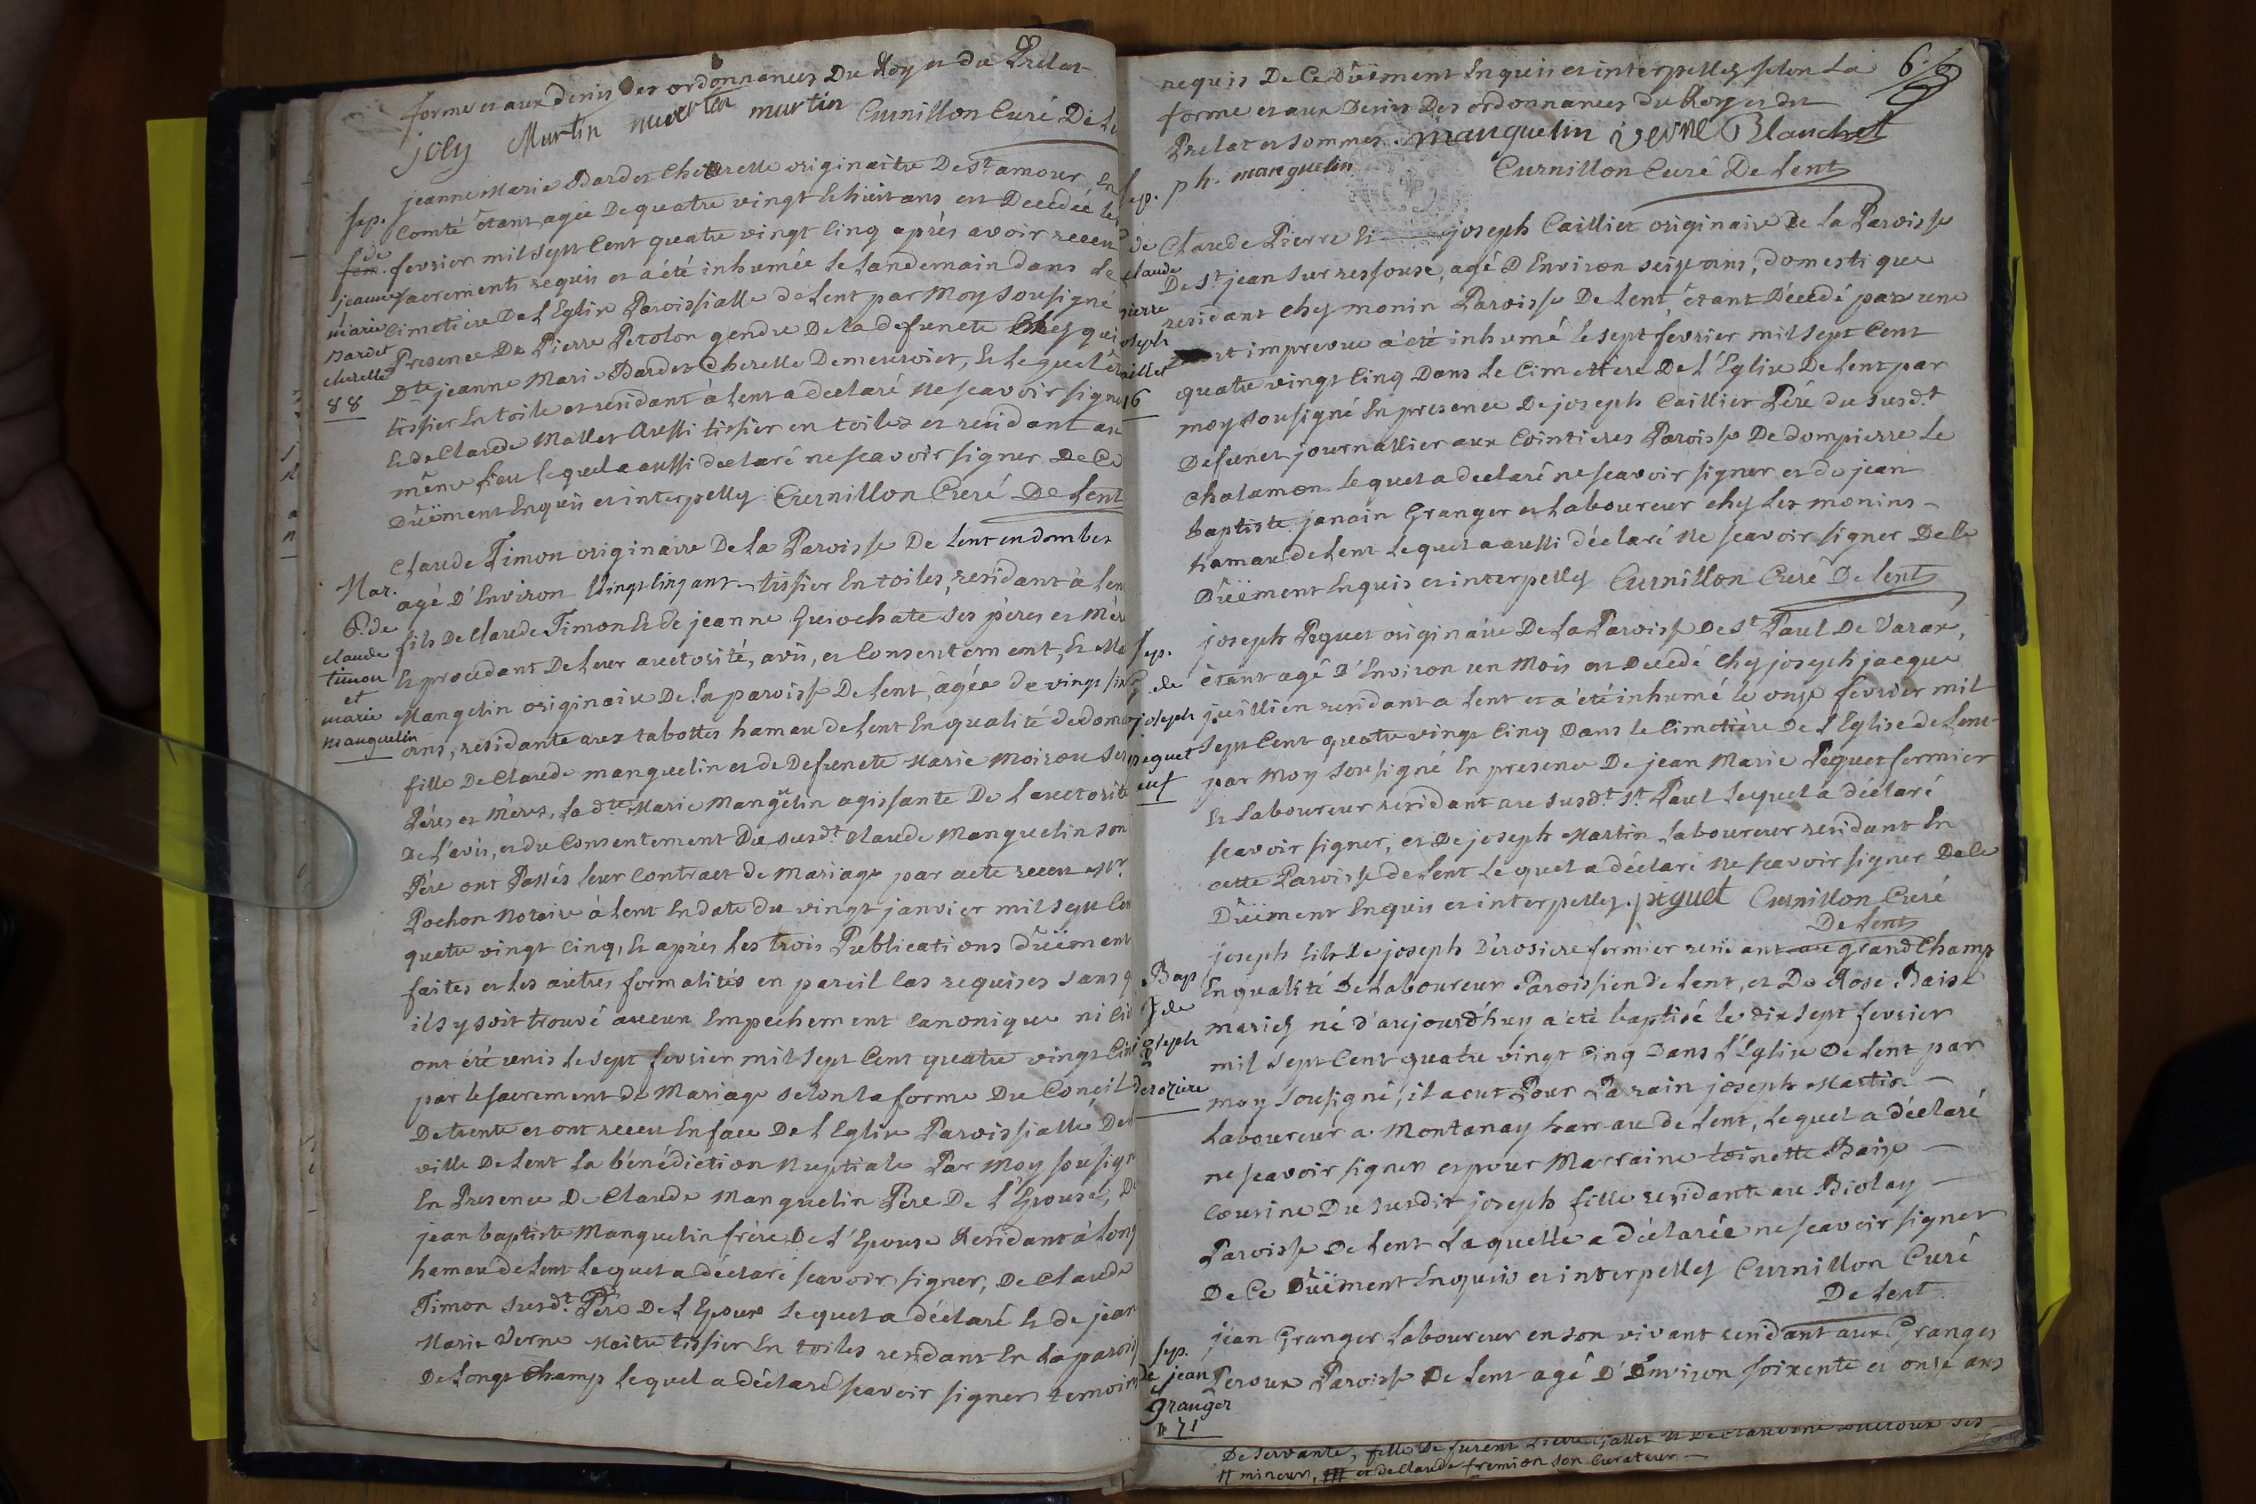 forme et aux desirs des ordonnances Du Roy et du Prelat
joly Martin martin Curnillon Curé De
jeanne Marie Bardet Cheverelle originaire De St amour En
Comté étant agée De quatre vingt et huit ans est Decedée le
fevrier mil sept Cent quatre vingt Cinq après avoir receu
sacrements requis et a été inhumée le landemain dans le
Cimetiere De l'Eglise Paroissialle de Lent par Moy sousigné
Presence De Pierre Petolon gendre De la defuncte Chez qui
Dte jeanne Marie Bardet Cherelle Demeuroit, Et lequel
tissier En toile et residant à Lent a declaré ne sçavoir signer
Et de Claude Mallet Aussi tissier en toiles et residant au
même lieu lequel a aussi declaré ne sçavoir signer De Ce
Düement Enquis et interpelly Curnillon Curé De Lent
Sep.
de
jeanne
marie
Bardet
cherelle
88
Claude Timon originaire De la Paroisse De Lent en dombes
agé D'Environ Vingt Cinq ans tissier En toiles, residant à Len
fils De Claude Timon Et de jeanne Guiochate ses pères et Mère
Et procedant De Leur auctorité, avis, et Consentement, Et
Mangelin originaire De la paroisse De Lent, agée de vingt six
ans, residante aux tabottes hameau de Lent En qualité de dome
fille De Claude manguelin et de Defuncte Marie Moirou ses
Pères et Mères, la dte Marie Manguelin agissante De l'auctorité
De l'avis, et du Consentement Du susdt. Claude Manguelin son
Père ont Passés leur Contract de Mariage par acte receu Mr.
Pochon Notaire à Lent En date du vingt janvier mil sept Cen
quatre vingt Cinq, Et après les trois Publications düement
faites et les autres formalités en pareil Cas requises sans q
il s'y soit trouvé aucun Empechement Canonique ni Ci
ont été unis le sept fevrier mil sept Cent quatre vingt Cin
par le sacrement de Mariage selon la forme Du Concil
De trente et ont receu En face De l'Eglise Paroissialle De
ville De Lent la bénédiction Nuptiale Par Moy sousign
En Presence De Claude Manguelin Père De l'Epouse, De
jean baptiste Manguelin frère De l'Epouse Residant à Long
hameau de Lent lequel a déclaré sçavoir signer, De Claude
Timon susdt. Père De l'Epoux lequel a déclaré Et de jean
Marie Verne Maitre tissier En toiles residant En la parois
De Longchamp lequel a déclaré sçavoir signer temoins
Mar.
6. de
claude
timon
et
marie
manguelin
6.
requis De Ce Düement Enquis et interpellez selon La
forme et aux Desirs Des ordonnances du Roy et du
Prelat et sommes. manguelin j verne Blanchet
ph. manguelin Curnillon Curé De Lent
Sep.
de
claude
pierre
joseph
16
Claude Pierre Et joseph Caillier originaire De la Paroisse
De St jean sur ressouse, agé D'Environ seize ans, domestique
residant chez monin Paroisse De Lent étant Décedé par une
mort imprevue a été inhumé le sept fevrier mil sept Cent
quatre vingt Cinq Dans le Cimettiere De l'Eglise De Lent par
moy sousigné En presence De joseph Caillier Père du susdt.
Defunct journallier aux Cointieres Paroisse De dompierre le
Chalamon lequel a declaré ne sçavoir signer et de jean
baptiste janain Granger et Laboureur chez les monins
hameau de Lent lequel a aussi déclaré ne sçavoir signer De Ce
Düement Enquis et interpelly Curnillon Curé De Lent
Sep.
de
joseph
peguet
joseph Peguet originaire De la Paroisse De St Paul De Varax,
étant agé D'Environ un Mois est Decedé Chez joseph jacque
juillien residant a Lent et a été inhumé le onze fevrier mil
sept Cent quatre vingt Cinq Dans le Cimetière De l'Eglise de Lent
par Moy sousigné En presence De jean Marie Peguet fermier
Et Laboureur residant au susdt. St. Paul lequel a déclaré
sçavoir signer, et De joseph Martin Laboureur residant En
cette Paroisse de Lent lequel a déclaré ne sçavoir signer De Ce
Düement Enquis et interpellez. piguet Curnillon Curé
De Lent
Bap
7 de
joseph
derozière
joseph fils De joseph Dérosiere fermier residant au grand Champ
En qualité De Laboureur Paroissien de Lent, et De Rose Baise
mariez né d'aujourd'huy a été baptisé le dix sept fevrier
mil sept Cent quatre vingt Cinq Dans l'Eglise De Lent par
moy sousigné, il a eut Pour Parain joseph Martin
Laboureur a Montanay hameau de Lent, lequel a déclaré
ne sçavoir signer et pour Marraine toinette Baise
Cousine Du susdit joseph fille residante au Biolay
Paroisse De Lent Laquelle a déclarée ne sçavoir signer
De Ce Düement Enquis et interpellez Curnillon Curé
De Lent
Sep.
de jean
granger
71
jean Granger Laboureur en son vivant residant aux Granges
Peroux Paroisse De Lent agé D'Environ soixente et onze ans
De servante, fille De
mineur, et de Claude fremion son Curateur